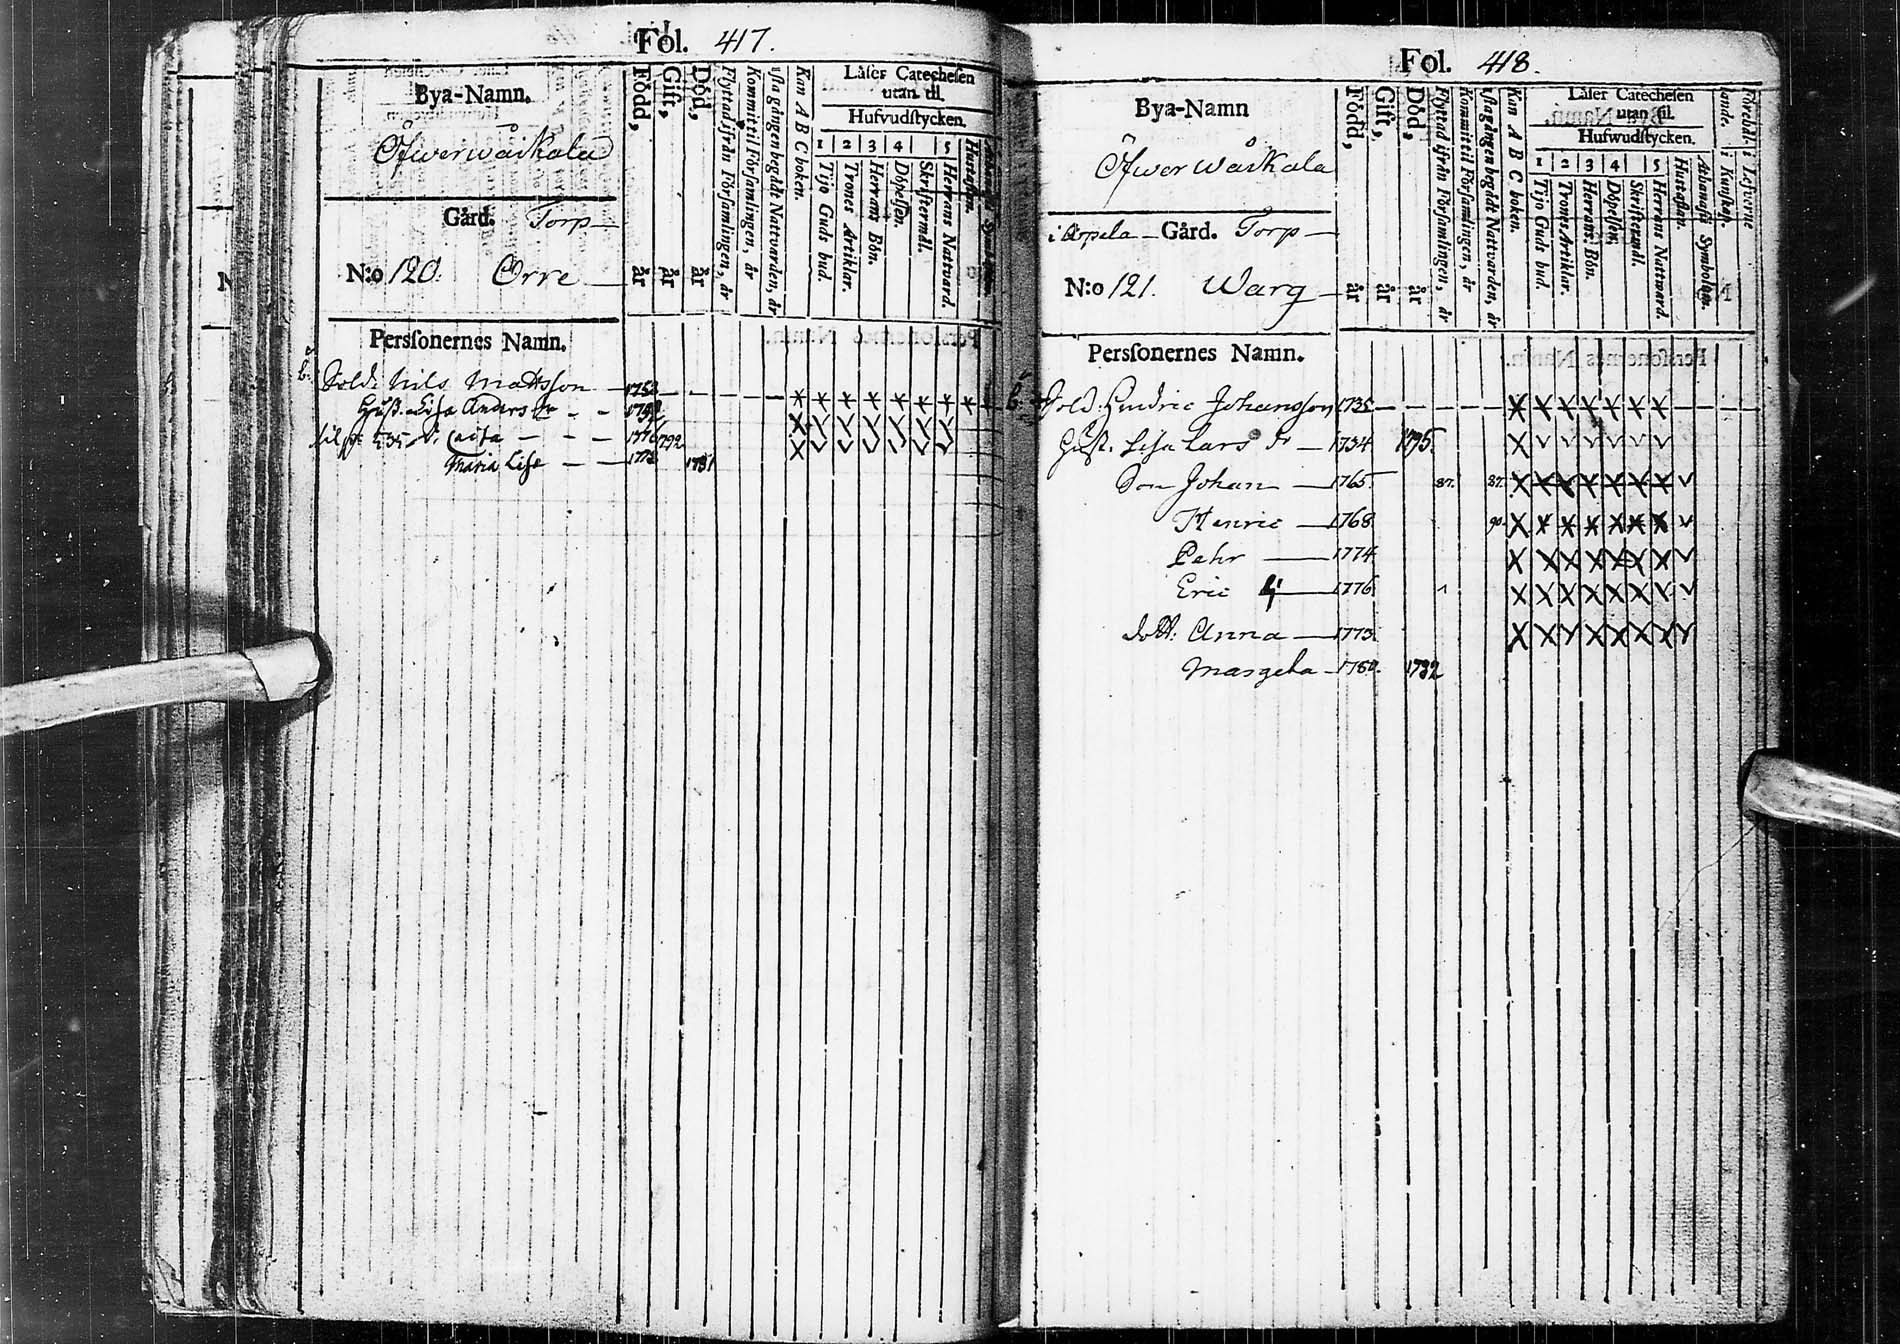 Fol. 417.
Bya-Namn.
Öfwerwåikala
Gård. Torp
N:o 120. Orre
Personernes Namn.
Född, år
Gift, år
Död, år
Flyttad ifrån Församlingen, år
Kommit til Församlingen, år
Kan A B C boken.
Läser Catechesen
utan til.
Hufvudstycken.
1 2 3 4 5
Tijo Guds bud.
Trones Artiklar.
Herrans Bön.
Döpelsen.
Skriftermål.
Herrans Nattvard.
Hustaflan.
Sold. Nils Mattsson 1753
Hust. Lisa Anders dr
Caisa 1776 1792
Maria Lisa 1781
Fol. 418.
Bya-Namn
Öfwer Wåikala
i Arpela Gård. Torp
N:o 121. Warg
Personernes Namn.
Född, år
Gift, år
Död, år
Flyttad ifrån Församlingen, år
Kommit til Församlingen, år
Kan A B C boken.
Läser Catechesen
utan til.
Hufwudstycken.
1 2 3 4 5
Tijo Guds bud.
Trones Artiklar.
Herrans Bön.
Döpelsen.
Skriftermål.
Herrans Nattward.
Hustaflan.
Athanasii Symbolum.
Sold. Hindric Johansson 1735
Hust. Lisa Lars dr 1734 1795.
Son Johan 1765. 87. 87.
Henric 1768 90.
Pehr 1774
Eric 1776
dott: Anna 1773.
Margeta 1780. 1782